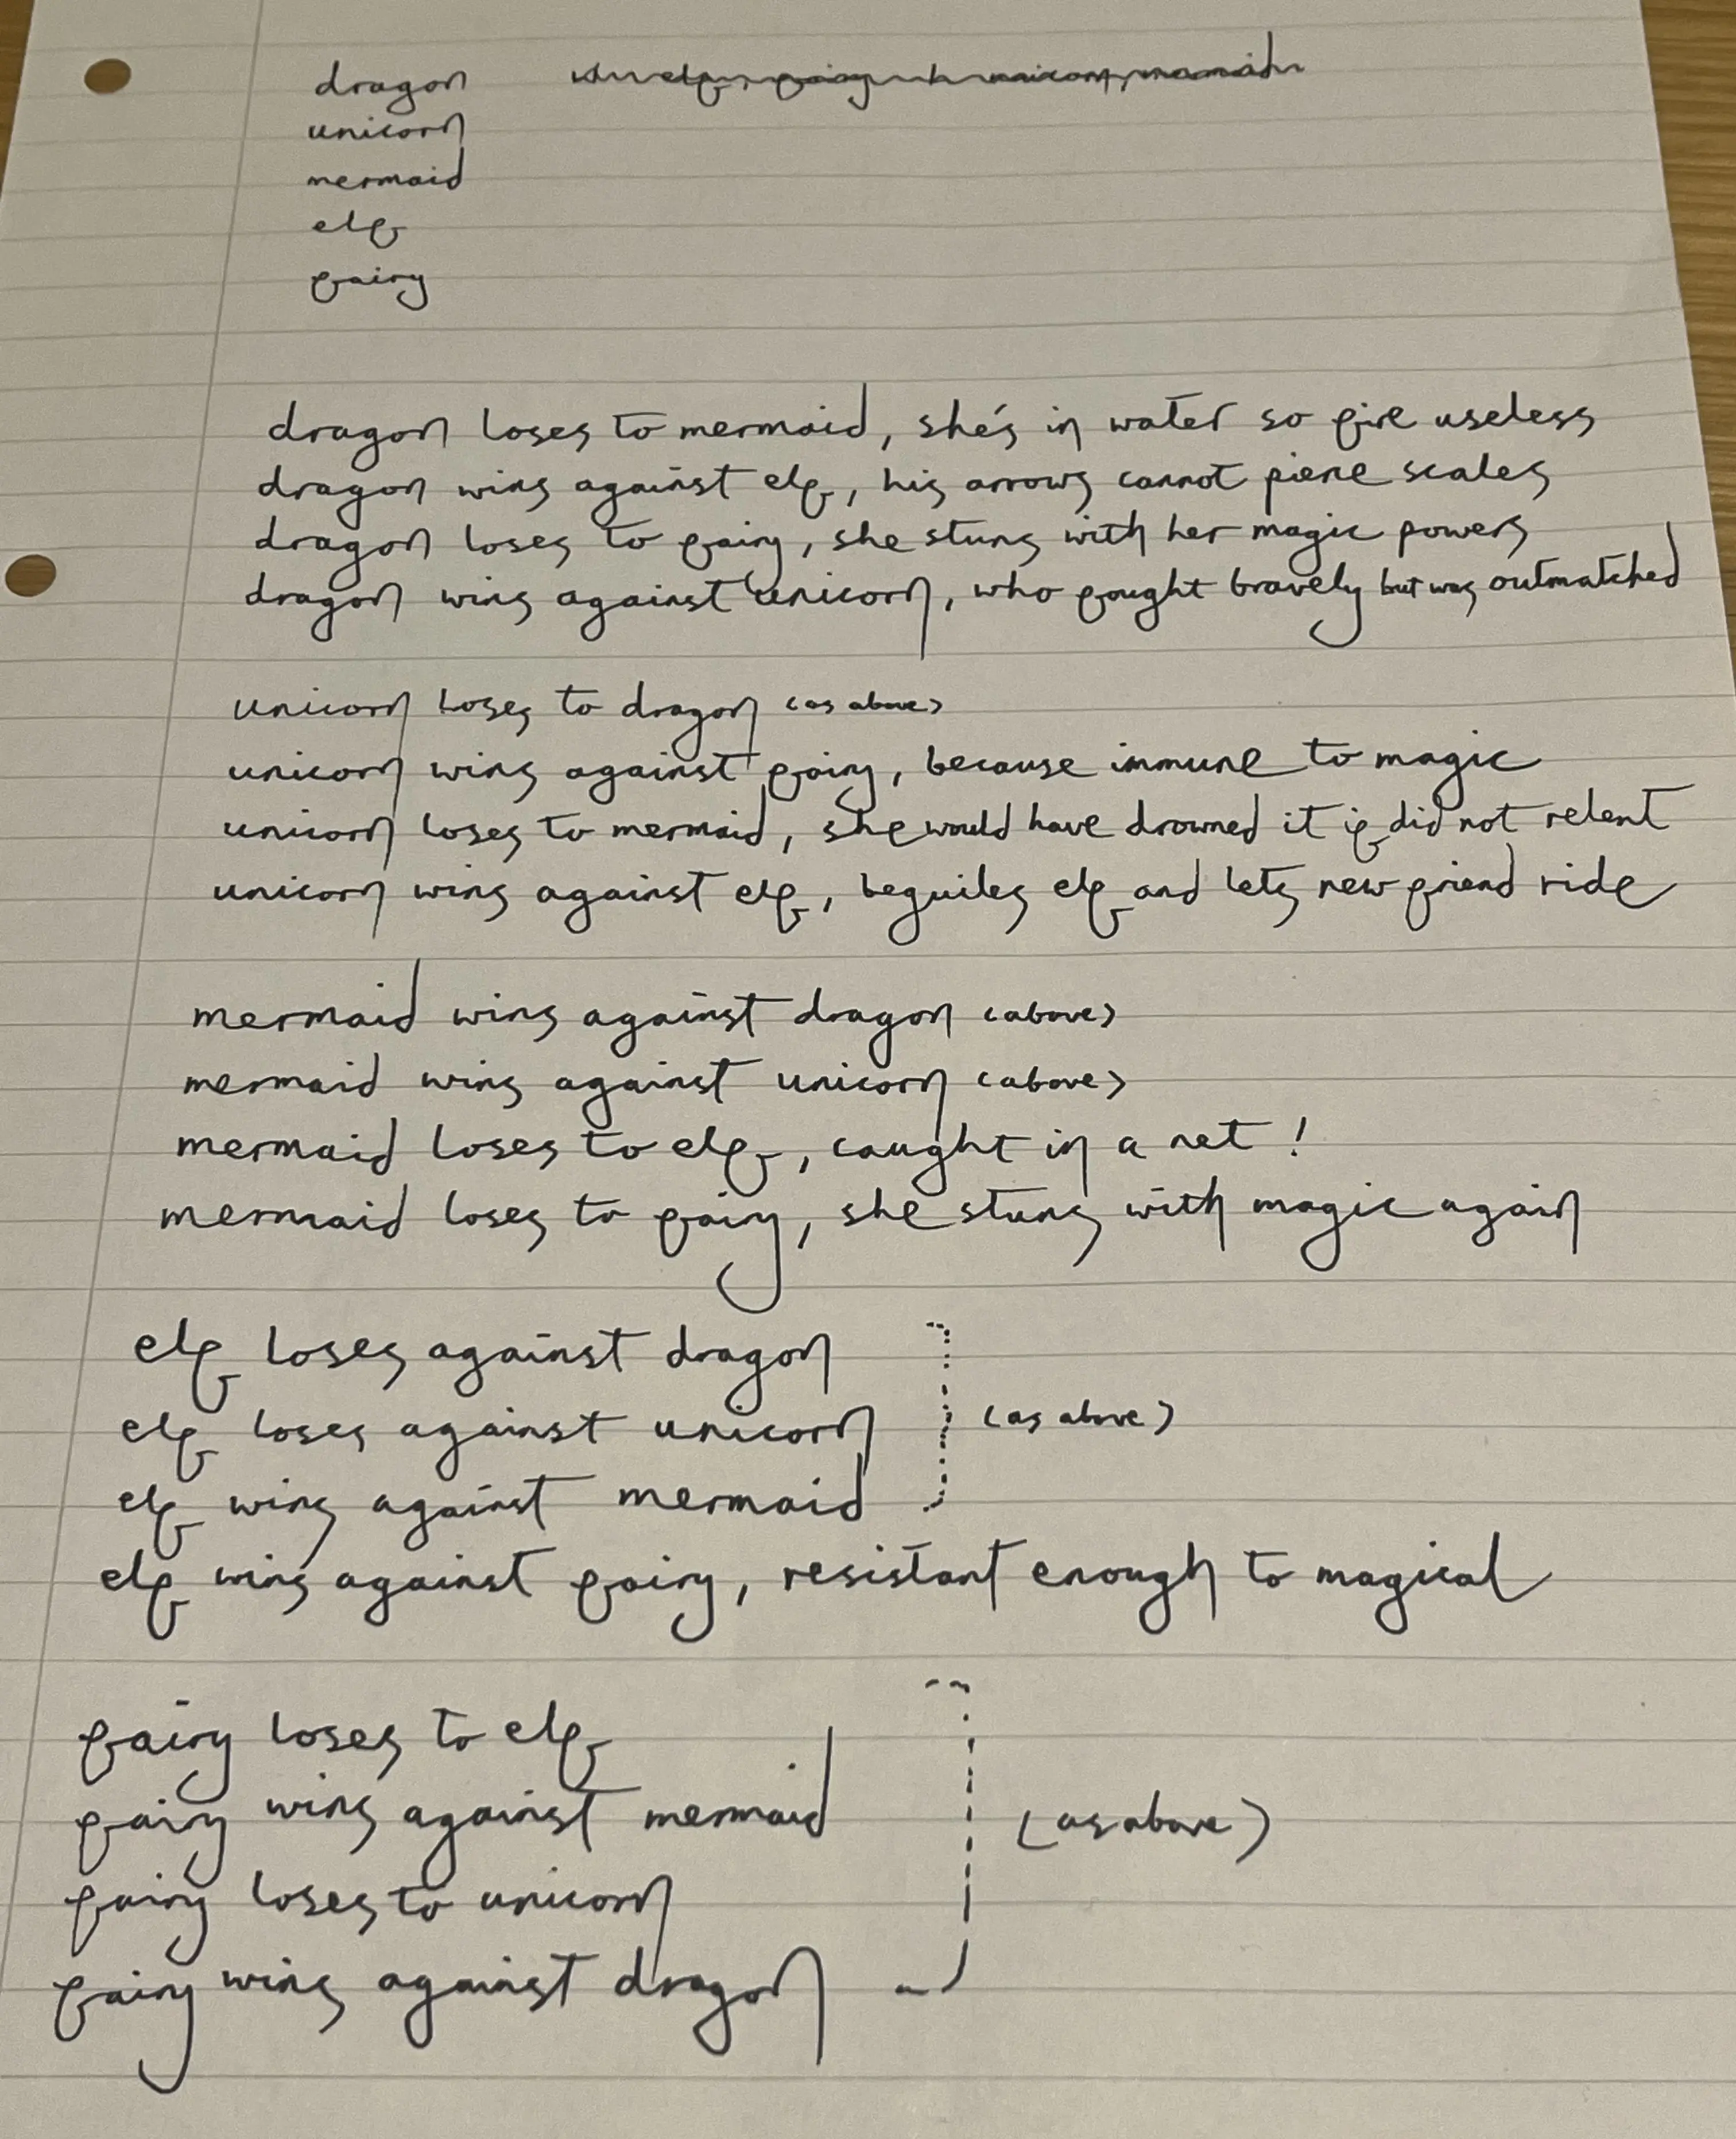 dragon
unicorn
mermaid
elf
fairy
dragon loses to mermaid, she's in water so fire useless
dragon wins against elf, his arrows cannot pierce scales
dragon loses to fairy, she stuns with her magic powers
dragon wins against unicorn, who fought bravely but was outmatched
unicorn loses to dragon (as above)
unicorn wins against fairy, because immune to magic
unicorn loses to mermaid, she would have drowned it if did not relent
unicorn wins against elf, beguiles elf and lets new friend ride
mermaid wins against dragon (above)
mermaid wins against unicorn (above)
mermaid loses to elf, caught in a net!
mermaid loses to fairy, she stuns with magic again
elf loses against dragon
elf loses against unicorn (as above)
elf wins against mermaid
elf wins against fairy, resistant enough to magical
fairy loses to elf
fairy wins against mermaid (as above)
fairy loses to unicorn
fairy wins against dragon